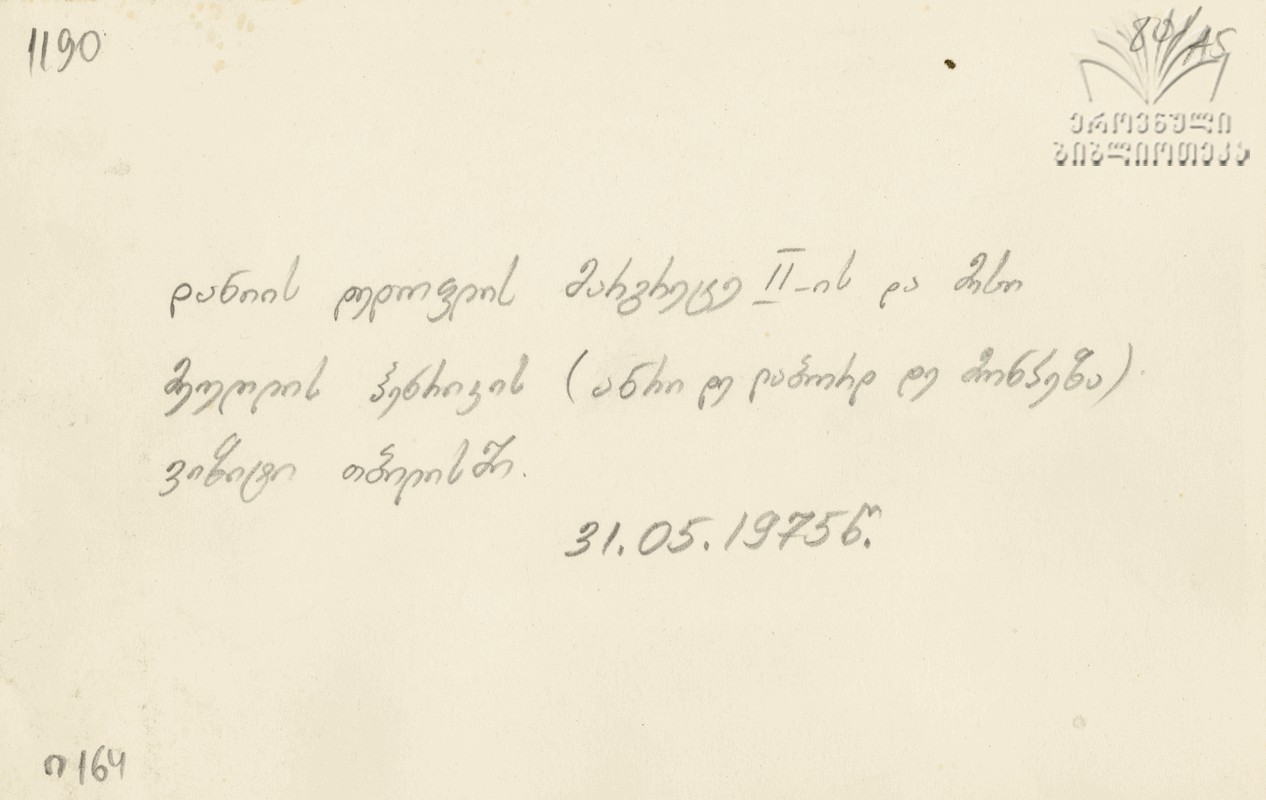 1190
ეროვნული
ბიბლიოთეკა
დანიის დედოფლის მარგრეტე II-ის და მისი
მეუღლის ჰენრიკის (ანრი დე ლაბორდ დე მონპეზა)
ვიზიტი თბილისში.
31.05.1975წ.
ი 164